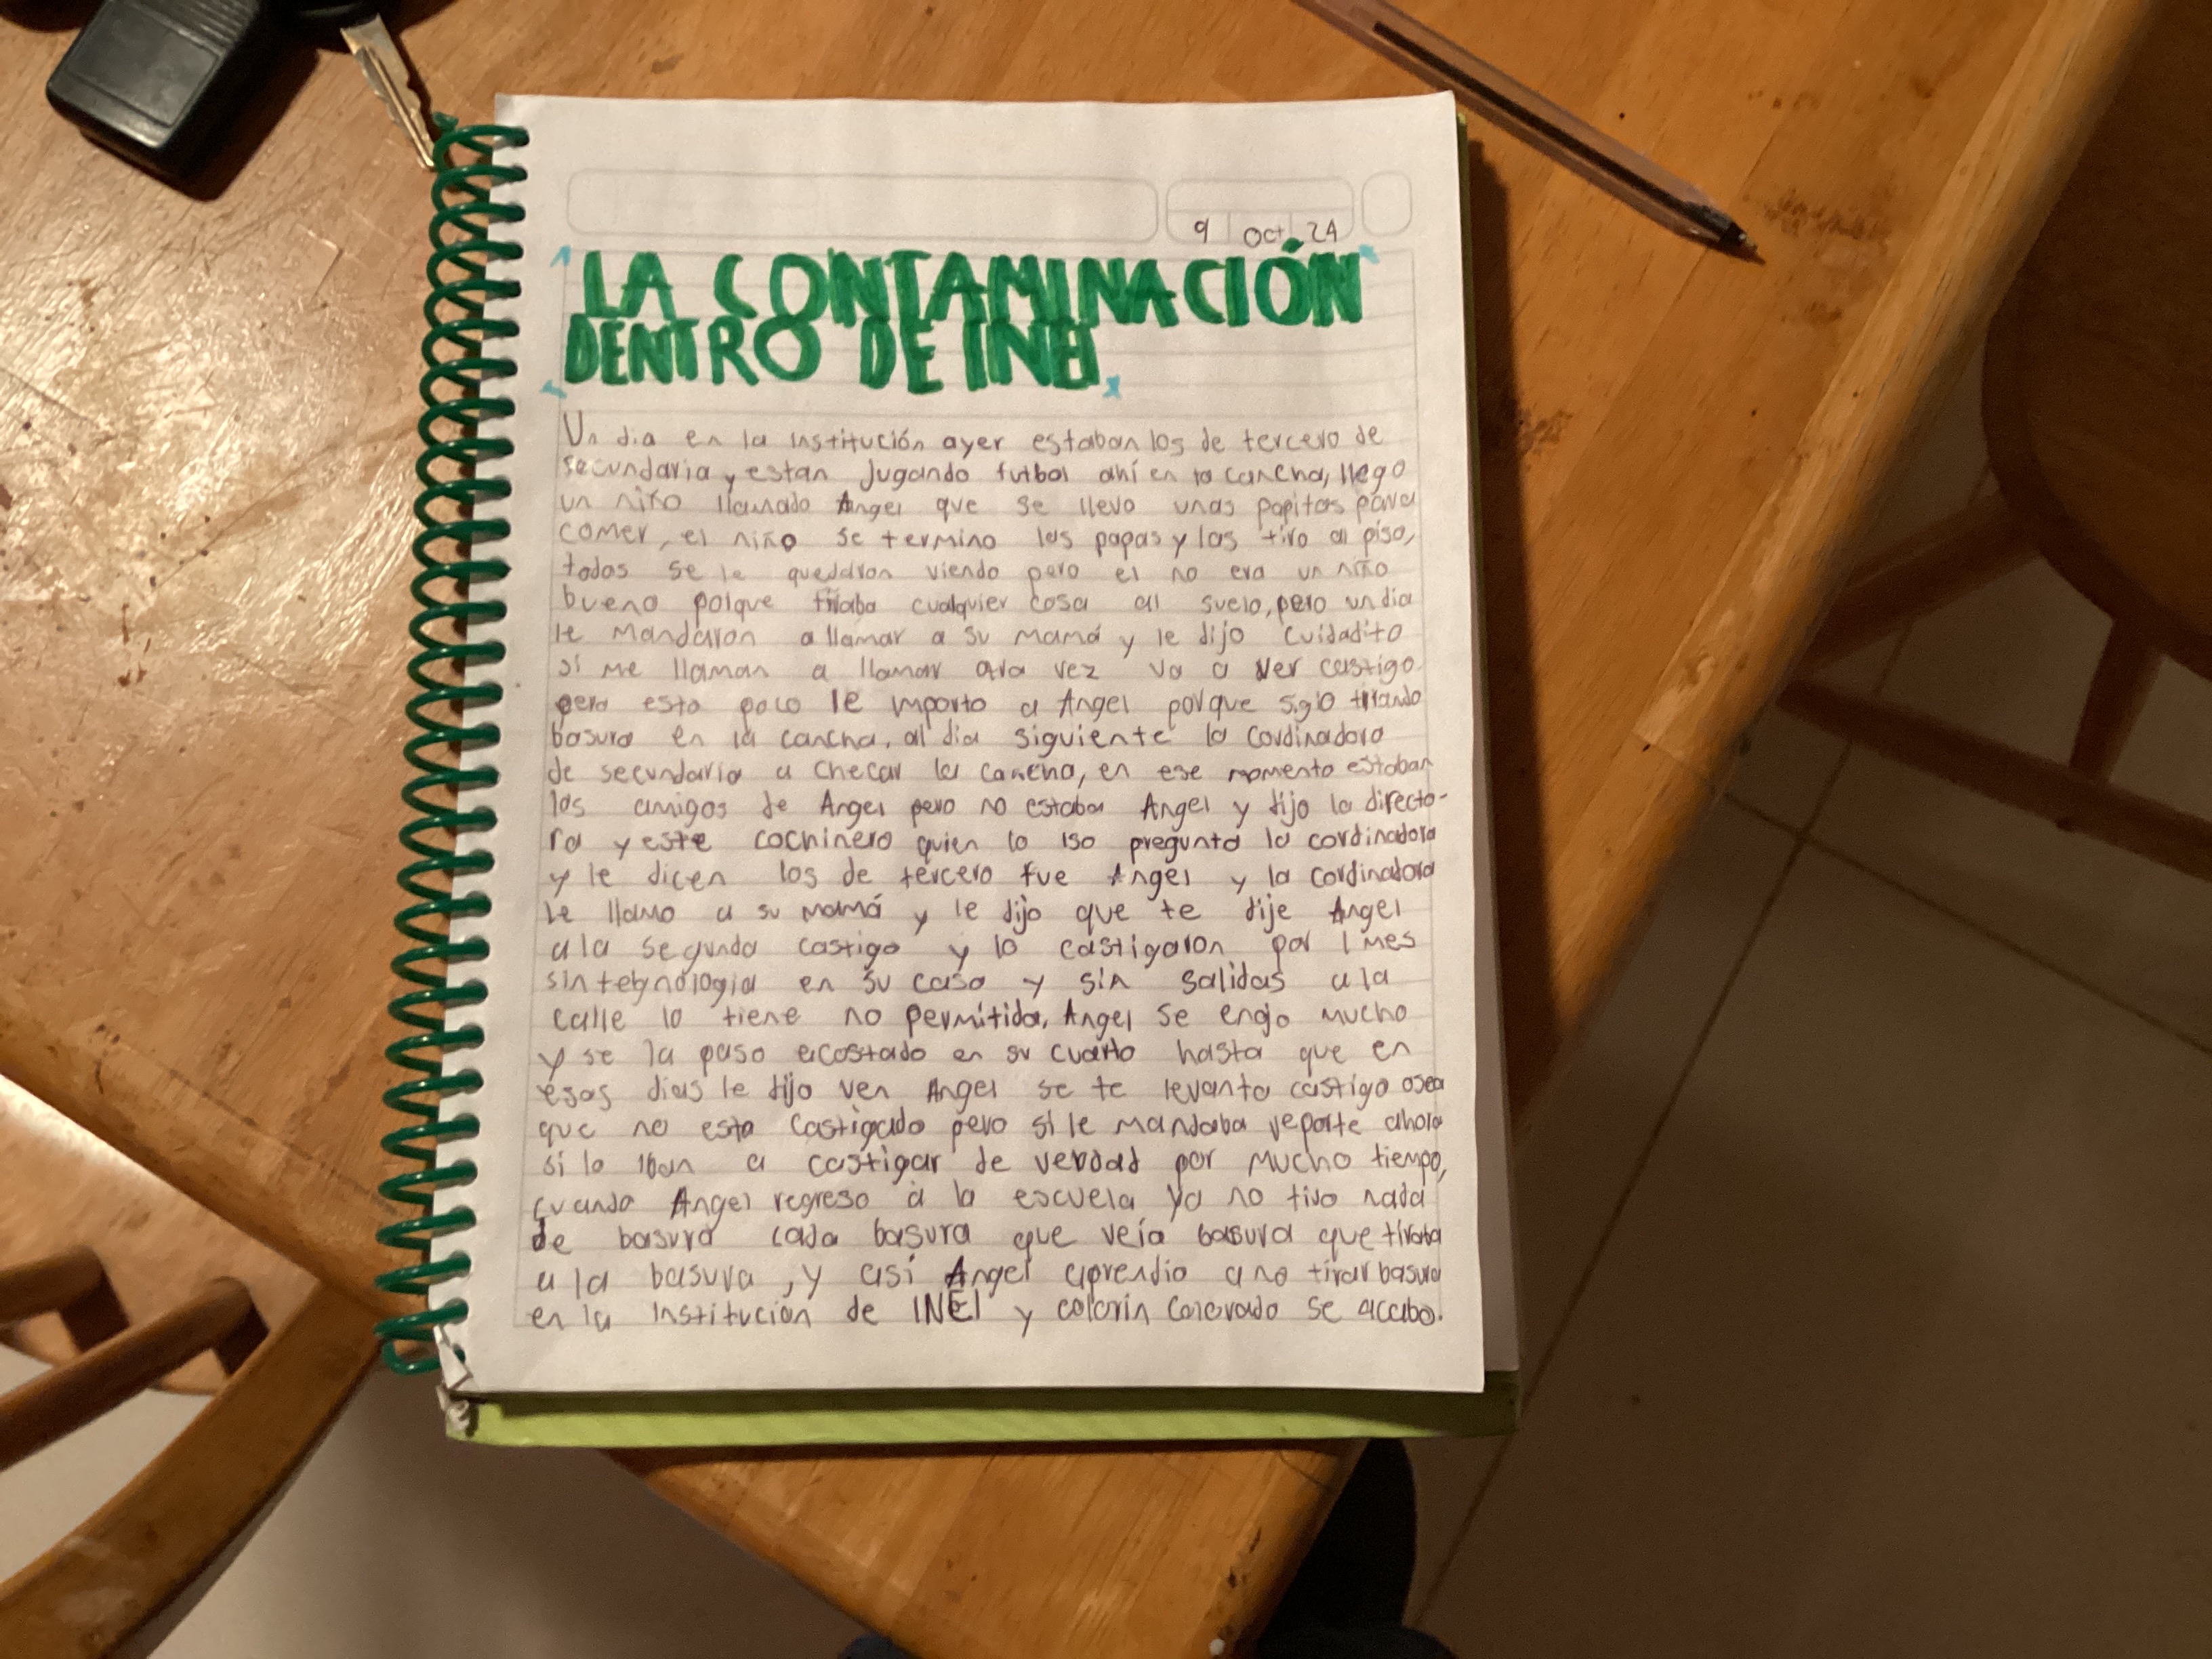 9 Oct 24
LA CONTAMINACIÓN
DENTRO DE INEI
Un dia en la institución ayer estaban los de tercero de
secundaria y estan jugando futbol ahí en la cancha, llego
un niño llamado Angel que se llevo unas papitas para
comer, el niño se termino las papas y las tiro al piso,
todos se le quedaron viendo pero el no era un niño
bueno porque tiraba cualquier cosa al suelo, pero un dia
le mandaron a llamar a su mamá y le dijo cuidadito
si me llaman a llamar otra vez va a ver castigo
pero esto poco le importo a Angel porque sigio tirando
basura en la cancha, al dia siguiente la cordinadora
de secundaria a checar la cancha, en ese momento estaban
los amigos de Angel pero no estaba Angel y dijo la directo-
ra y este cochinero quien lo iso pregunto la cordinadora
y le dicen los de tercero fue Angel y la cordinadora
le llamo a su mamá y le dijo que te dije Angel
a la segunda castigo y lo castigaron por 1 mes
sin tegnologia en su casa y sin salidas a la
calle lo tiene no permitida, Angel se enojo mucho
y se la paso acostado en su cuarto hasta que en
esos dias le dijo ven Angel se te levanto castigo osea
que no esta castigado pero si le mandaba reporte ahora
si lo iban a castigar de verdad por mucho tiempo,
cuando Angel regreso a la escuela ya no tiro nada
de basura cada basura que veía basura que tiraba
a la basura, y asi Angel aprendio a no tirar basura
en la institución de INEI y colorin colorado se acabo.